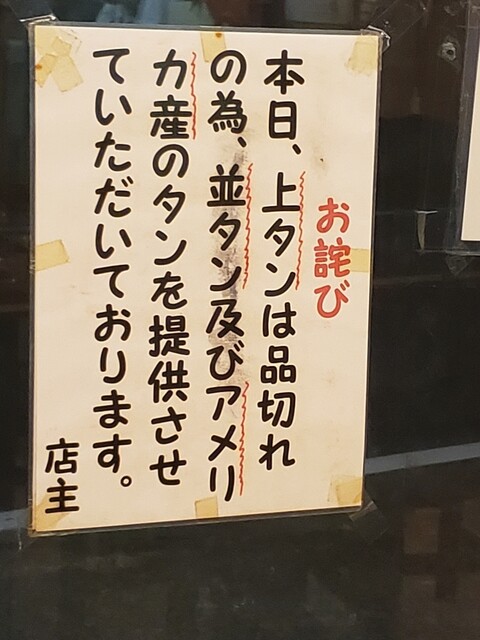 お詫び
本日、上タンは品切れ
の為、並タン及びアメリ
カ産のタンを提供させ
ていただいております。
店主